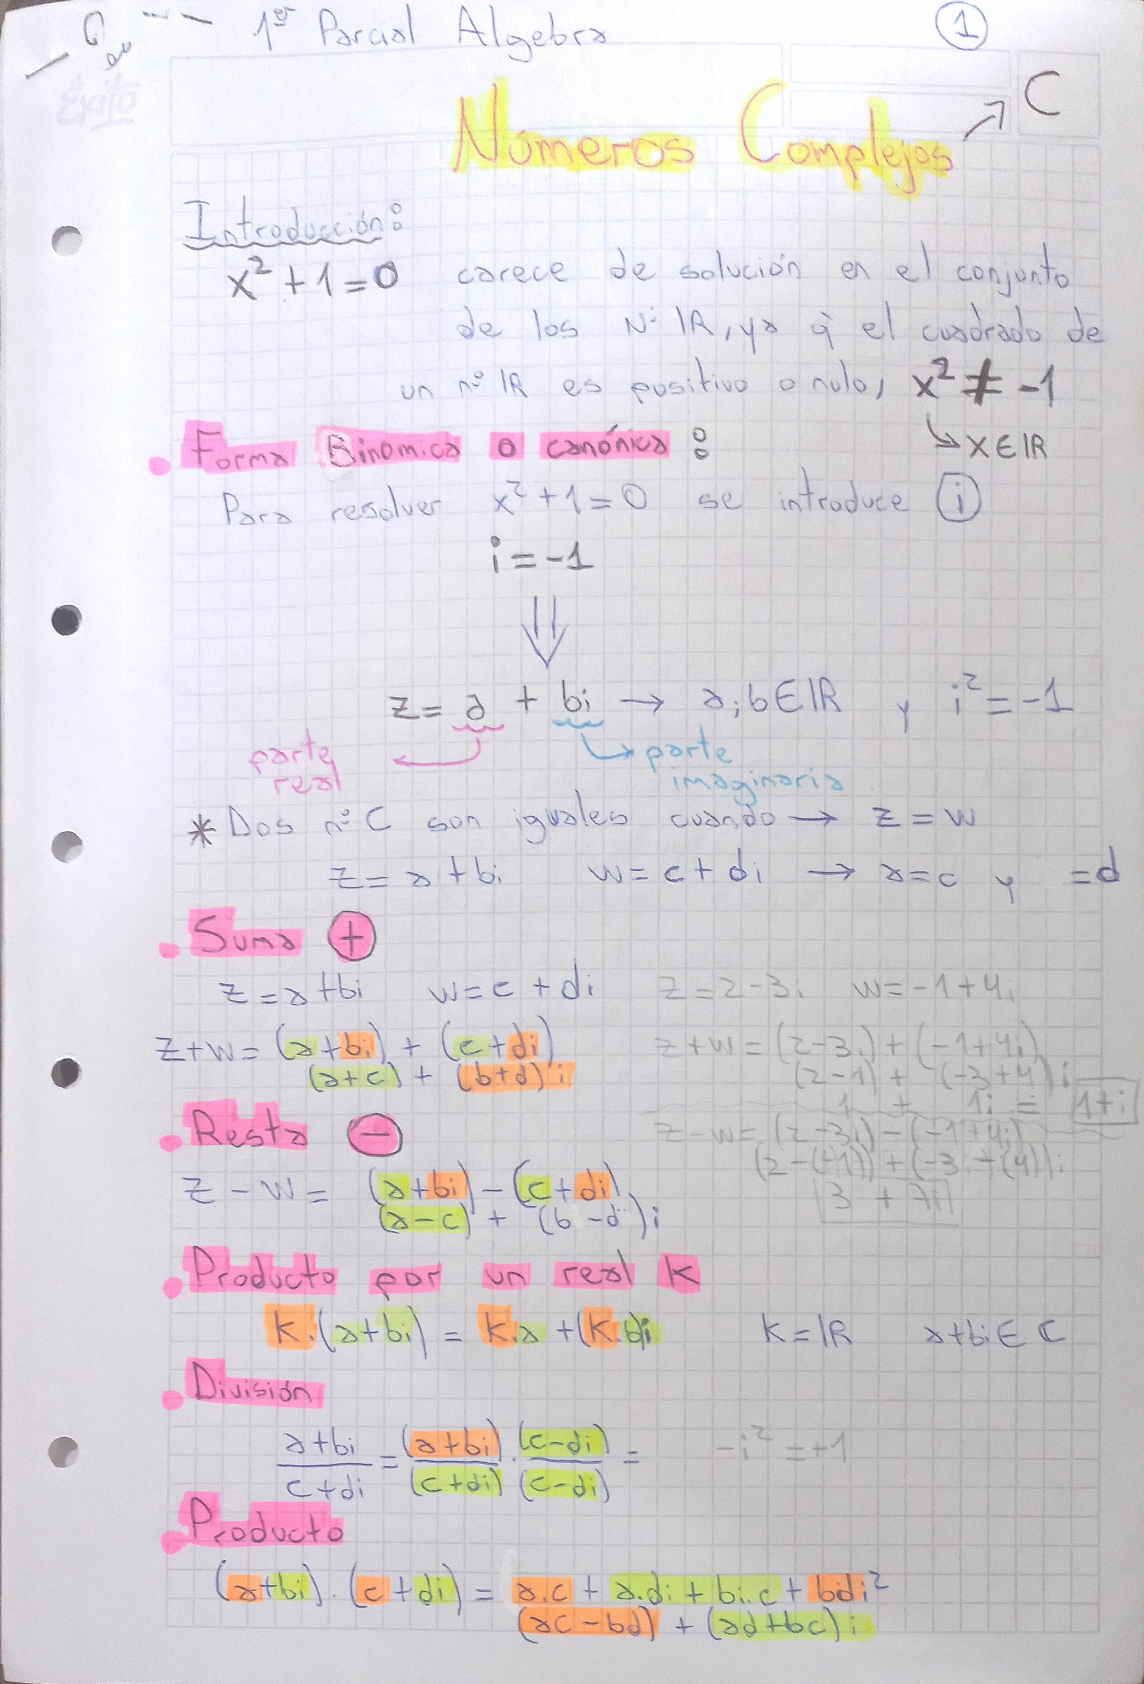 1er Parcial Algebra
1
Éxito
Números Complejos → C
Introducción:
x² + 1 = 0 carece de solución en el conjunto
de los Nº ℝ, ya q̄ el cuadrado de
un nº ℝ es positivo o nulo, x² ≠ -1
↳ x ∈ ℝ
• Forma Binomica o canónica:
Para resolver x² + 1 = 0 se introduce i
i = -1
⇓
z = a + bi → a; b ∈ ℝ y i² = -1
parte real
parte imaginaria
* Dos nº C son iguales cuando → z = w
z = a + bi w = c + di → a = c y = d
• Suma +
z = a + bi w = c + di z = 2 - 3i w = -1 + 4i
z + w = (a + bi) + (c + di) z + w = (2 - 3i) + (-1 + 4i)
(a + c) + (b + d)i (2 - 1) + (-3 + 4)i
1 + 1i = 1 + i
• Resta −
z - w = (2 - 3i) - (-1 + 4i)
(2 - (-1)) + (-3 - (4))i
3 + 7i
z - w = (a + bi) - (c + di)
(a - c) + (b - d)i
• Producto por un real K
K.(a + bi) = K.a + (K.b)i K = ℝ a + bi ∈ C
• División
a + bi / c + di = (a + bi) / (c + di) . (c - di) / (c - di) = -i² = +1
• Producto
(a + bi) . (c + di) = a.c + a.di + bi.c + bdi²
(ac - bd) + (ad + bc)i